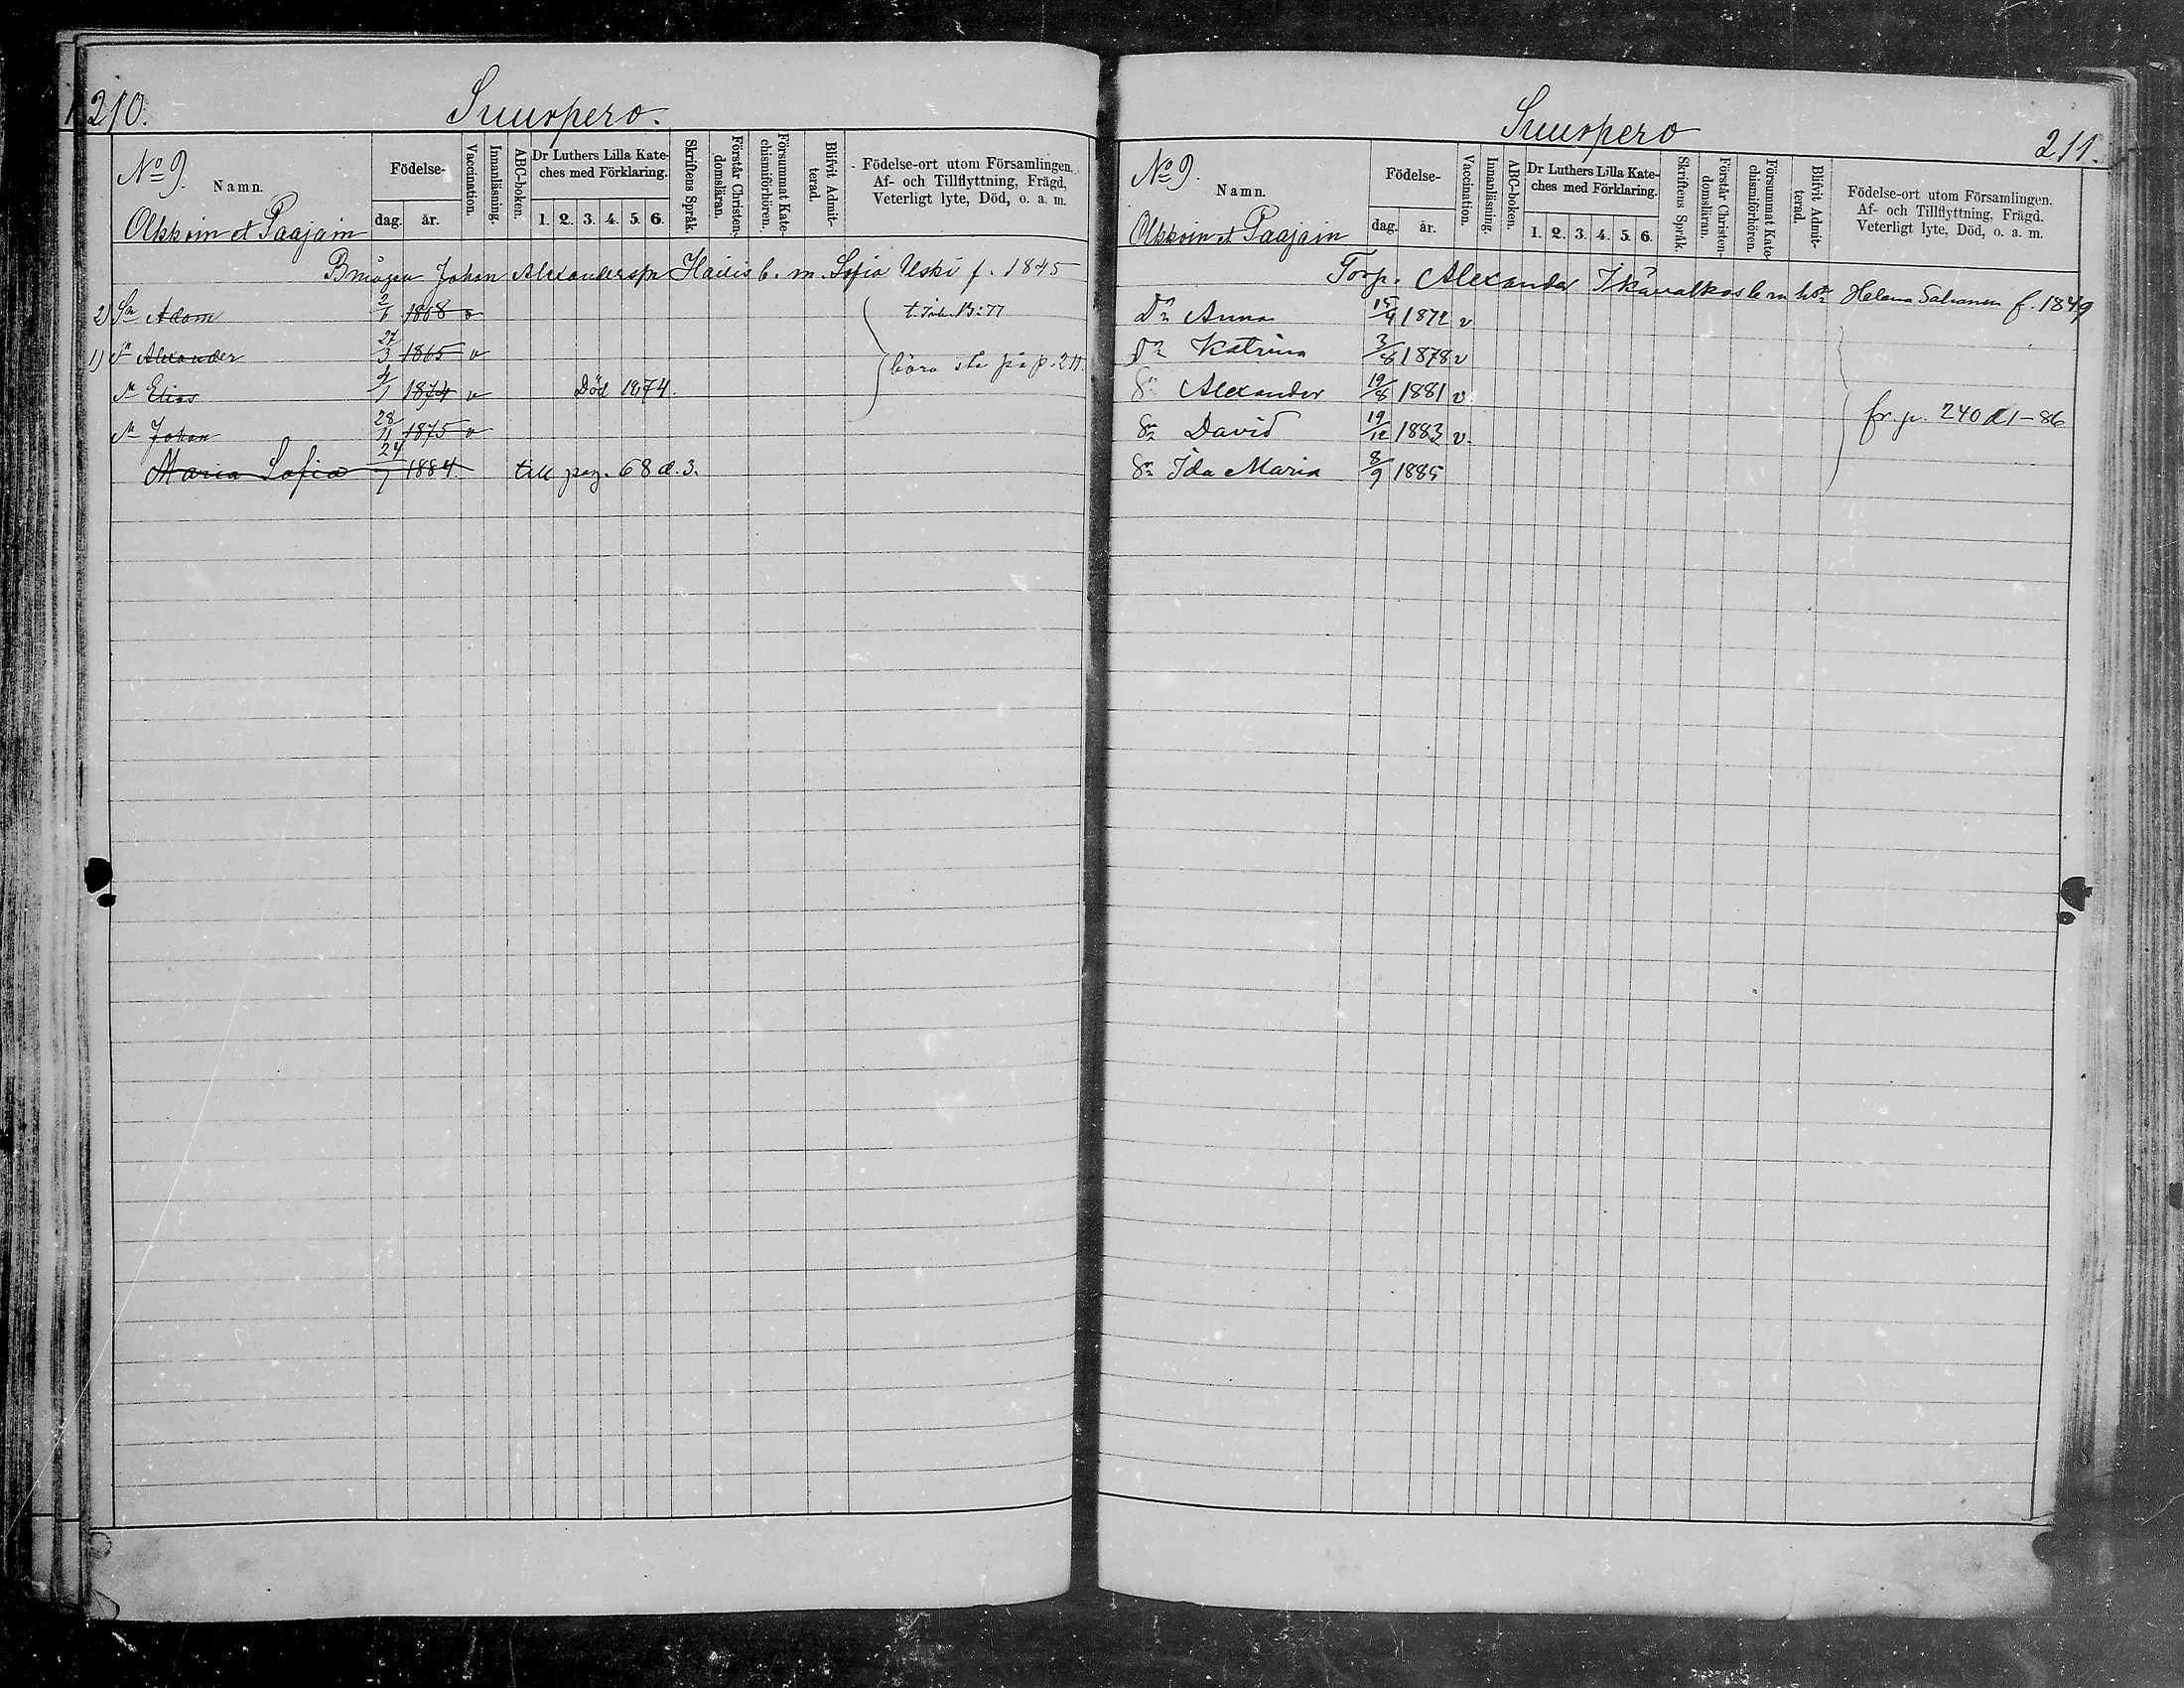 210.
Suurpero.
No 9.
Namn.
Födelse-
dag.
år.
Vaccination.
Innanläsning.
ABC-boken.
Dr Luthers Lilla Kate-
ches med Förklaring.
1. 2. 3. 4. 5. 6.
Skriftens Språk.
Förstår Christen-
domsläran.
Försummat Kate-
chismiförhören.
Blifvit Admit-
terad.
Födelse-ort utom Församlingen,
Af- och Tillflyttning, Frägd,
Veterligt lyte, Död, o. a. m.
Olkkoin et Paajain
Johan Alexandersson b. m. Sofia Uski f. 1845
2) Sn Adam 2/6 1868 v
1) Sn Alexander 27/3 1865 v
böra stå på p. 211.
Sn Elias 4/1 1874 v Död 1874.
Sn Johan 28/11 1875 v
Maria Sofia 24/7 1884. till pag. 68 d. 3.
Suurpero
211.
No 9.
Namn.
Födelse-
dag.
år.
Vaccination.
Innanläsning.
ABC-boken.
Dr Luthers Lilla Kate-
ches med Förklaring.
1. 2. 3. 4. 5. 6.
Skriftens Språk.
Förstår Christen-
domsläran.
Försummat Kate-
chismiförhören.
Blifvit Admit-
terad.
Födelse-ort utom Församlingen,
Af- och Tillflyttning, Frägd.
Veterligt lyte, Död, o. a. m.
Olkkoin et Paajain
Torp. Alexander Ikävalkos b m Helena f. 1849
Dr Anna 15/4 1872 v
Dr Katrina 3/8 1878 v
Sn Alexander 19/8 1881 v.
Sn David 19/12 1883 v.
fr. p. 240 d 1-86
Ida Maria 8/9 1885